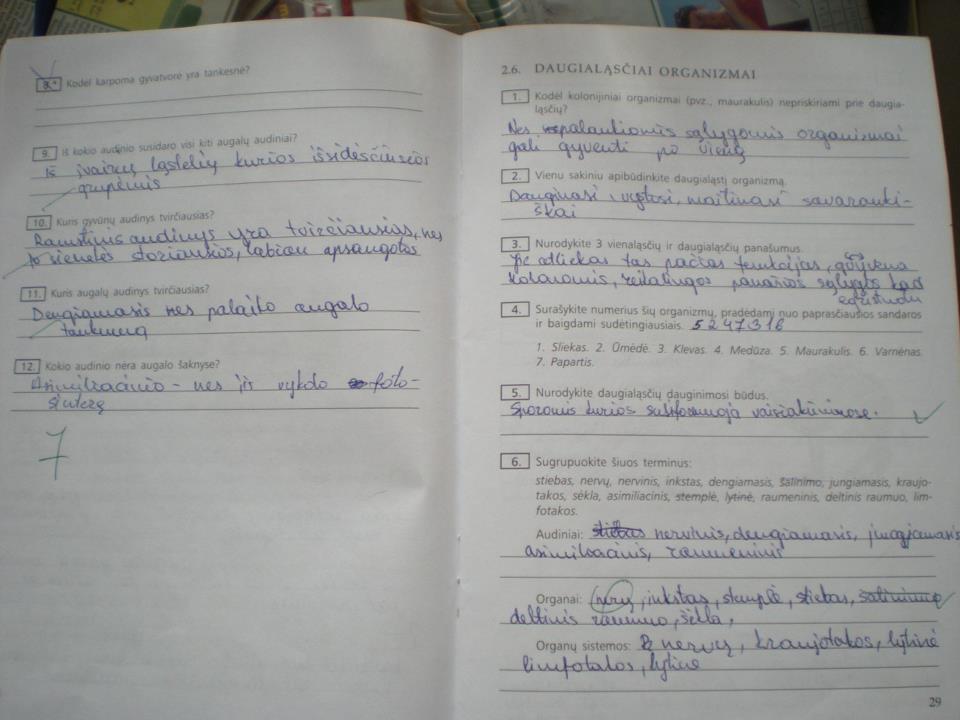 8.* Kodėl karpoma gyvatvorė yra tankesnė?
9. Iš kokio audinio susidaro visi kiti augalų audiniai?
Iš įvairių ląstelių kurios išsidėsčiusios
grupėmis
10. Kuris gyvūnų audinys tvirčiausias?
Ramstinis audinys yra tvirčiausias, nes
jo sienelės storiausios, labiau apsaugotos
11. Kuris augalų audinys tvirčiausias?
Dengiamasis nes palaiko augalo
tankumą
12. Kokio audinio nėra augalo šaknyse?
Asimiliacinio - nes jis vykdo foto-
sintezę
7
2.6. DAUGIALĄSČIAI ORGANIZMAI
1. Kodėl kolonijiniai organizmai (pvz., maurakulis) nepriskiriami prie daugia-
ląsčių?
Nes nepalankiomis sąlygomis organizmai
gali gyventi po vieną
2. Vienu sakiniu apibūdinkite daugialąstį organizmą.
Dauginasi, vystosi, maitinasi savaranki-
škai
3. Nurodykite 3 vienaląsčių ir daugialąsčių panašumus.
Jie atliekas tas pačias funkcijas, gyvena
kolonomis, reikalingos panašios sąlygos kad
egzistuotų
4. Surašykite numerius šių organizmų, pradėdami nuo paprasčiausios sandaros
ir baigdami sudėtingiausiais. 5247316
1. Sliekas. 2. Ūmėdė. 3. Klevas. 4. Medūza. 5. Maurakulis. 6. Varnėnas.
7. Papartis.
5. Nurodykite daugialąsčių dauginimosi būdus.
Sporomis kurios susiformuoja vaisiakūniuose.
6. Sugrupuokite šiuos terminus:
stiebas, nervų, nervinis, inkstas, dengiamasis, šalinimo, jungiamasis, kraujo-
takos, sėkla, asimiliacinis, stemplė, lytinė, raumeninis, deltinis raumuo, lim-
fotakos.
Audiniai: stiebas nervinis, dengiamasis, jungiamasis
asimiliacinis, raumeninis
Organai: nervų, inkstas, stemplė, stiebas, šalinimo
deltinis raumuo, sėkla,
Organų sistemos: nervų, kraujotakos, lytinė
limfotakos, lytinė
29